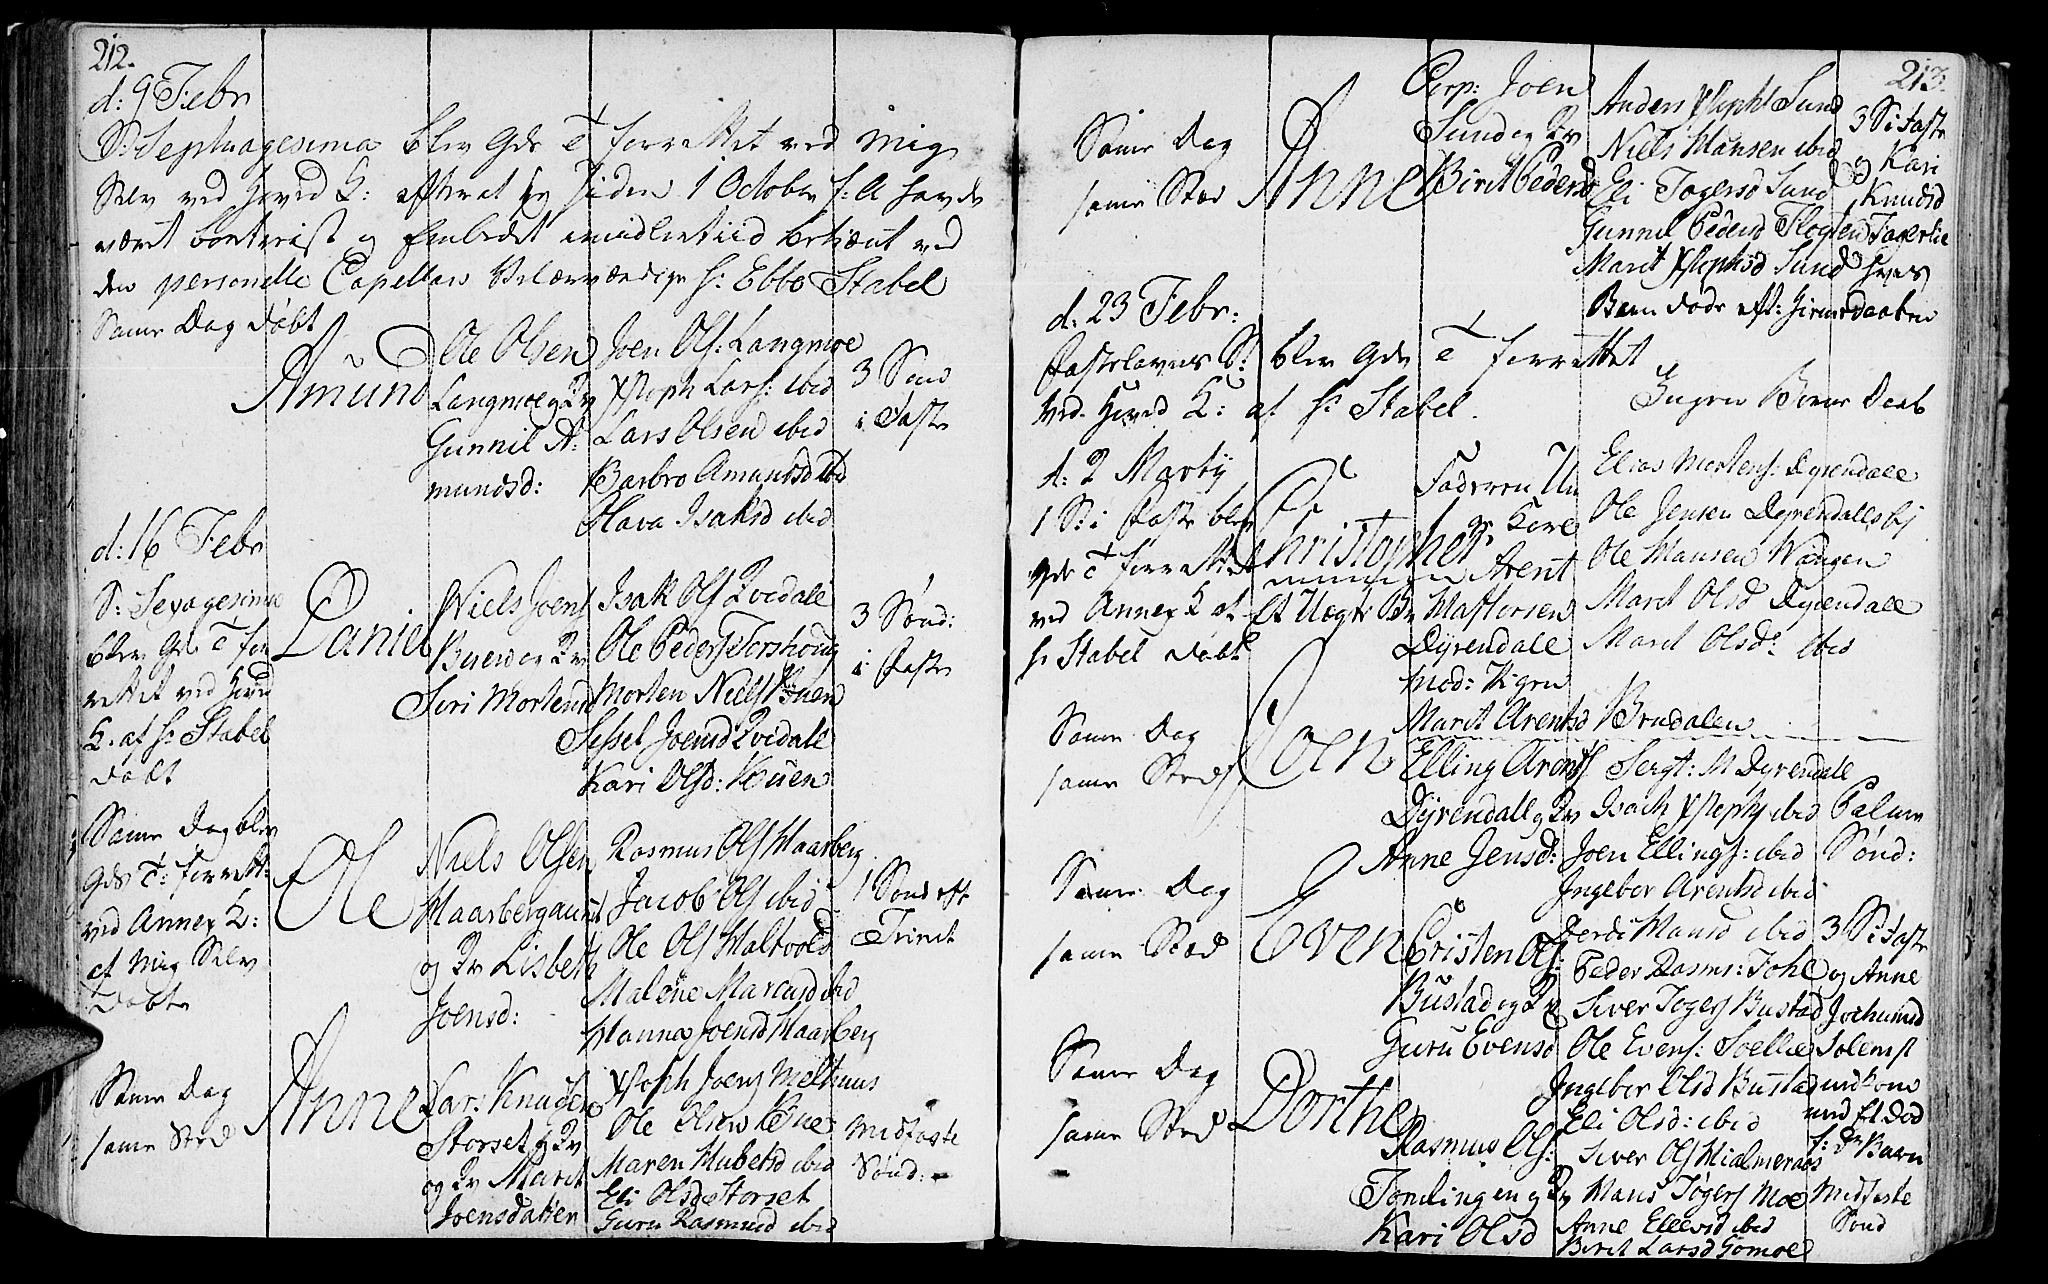 212.
d: 9 Febr
S: Septuagesima blev Gds T forrettet ved mig
Selv ved Hoved K: efterat jeg siden 1 October f: A havde
været bortreist og Embedet imidlertiid betient ved
den personelle Capellan Velærværdige Hr: Ebbe Stabel
Same Dag døbt
Amund
Ole Olsen
Langmoe og Qv
Gunnil A:
mundsd:
Joen Ols: Langmoe
Xstoph Lars: ibid
Lars Olsen ibid
Barbro Amundsd ibid
Olava Isaksd ibid
3 Sønd
i Faste
d: 16 Febr
S: Sexagesima
blev Gds T for
rettet ved Hoved
K. af Hr Stabel
døbt
Daniel
Niels Joens
Buen og Qv
Siri Mortensd
Isak Ols Qvedale
Ole Peders Forshoug
Morten Niels Buen
Sissel Joensd Qvedale
Kari Olsd: Buen
3 Sønd:
i Faste
Same Dag blev
Gds T: forrett:
ved Annex K:
af Mig Selv
Døbte
Ole
Niels Olsen
Haarbergaunet
og Qv Lisbeth
Joensd:
Rasmus Ols Haarberg
Jacob Ols ibid
Ole Ols Waltvold
Malene Marcusd ibid
Hanna Joensd Haarberg
1 Sønd eft
Trinit
Same Dag
same Sted
Anne
Lars Knudsen
Storset og Qv
og Qv Marit
Joensdatter
Xstoph Joens Melhuus
Ole Olsen Bue
Maren Hubertsd ibid
Eli Olsd Storset
Guru Rasmusd ibid
Midfaste
Sønd:
213.
Same Dag
same Sted
Anne
Corp: Joen
Sund og Qv
Birit Pedersd
Anders Xstophs Sund
Niels Hansen ibid
Eli Togersd Sund
Gunnil Pedersd Flogten
Marit Xstophsd Sund
3 S i Faste
og Kari
Knudsd
Fagerlie
hvis
Barn døde eft: Hiemedaaben
d: 23 Febr:
Fastelavens S: blev Gds T forrettet
ved Hoved K: af Hr Stabel.
Ingen Børne Daab
d: 2 Martij
1 S: i Faste blev
Gds T forrettet
ved Annex K af
Hr Stabel døbt
Christopher
Et Uægte Bn
Faderen Un
gr Karl
Arent
Hastorsen
Dyrendale
Mod: Pigen
Marit Arentsd Brudalen
Elias Mortens: Dyrendale
Ole Jensen Dyrendallsbj
Ole Hansen Wangen
Marit Olsd Dyrendale
Marit Olsd: ibid
Same Dag
same Sted
Joen
Elling Arents
Dyrendall og Qv
Anne Jensd:
Sergt: M Dyrendall
Isach Xstophs ibid
Joen Ellings: ibid
Ingebor Arentsd ibid
Jerdi Hansd ibid
Palme
Sønd:
Same Dag
same Sted
Even
Cristen Ols:
Bustad og Qv
Guru Evensd
Peder Rasms: Johl
Siver Togers Bustad
Ole Evens: Soellie
Ingebor Olsd Bustad
Eli Olsd: ibid
3 S i Faste
og Anne
Jochumsd
Solemst
nedkom
med et Død
f: dt Barn
Same Dag
same Sted
Dorthe
Rasmus Ols:
Tomlingen og Qv
Kari Olsd
Siver Ols Hialmeraas
Hans Togers Moe
Anne Ellevsd ibid
Berit Larsd Gomoe
Midfaste
Sønd